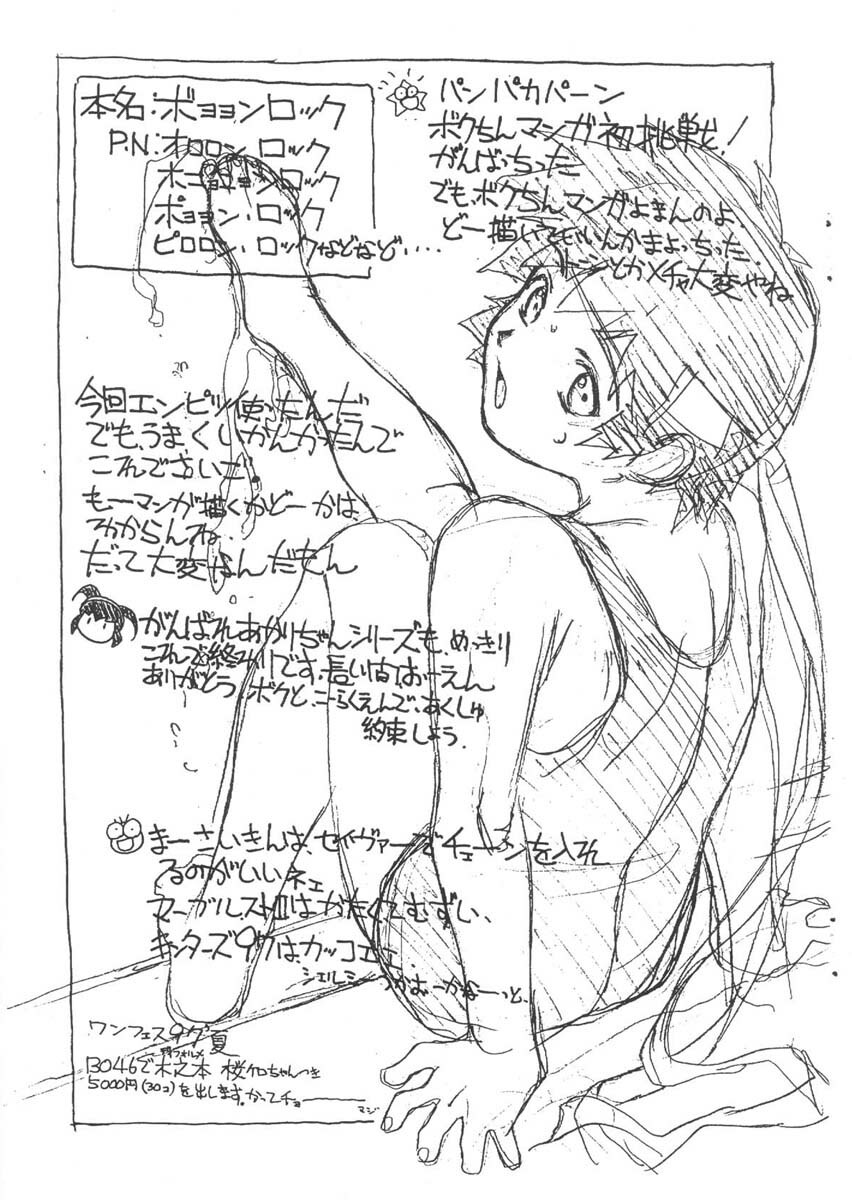 本名:ボョョンロック
P.N:オロロン ロック
ポョョン・ロック
ピロロン・ロックなどなど・・・・
パンパカパーン
ボクちんマンガ初挑戦!
がんばっちった
でも、ボクちんマンガよまんのよ、
どー描いていいんかまよっちった。
とかメチャ大変やね
今回エンピツ使ったんだ
でも、うまくいかんかったんで
これでさいご。
もーマンガ描くかどーかは、
わからんね、
だって大変なんだもん
がんばれあかりちゃんシリーズも、めっきり
これで終わりです。長い間おーえん
ありがとう。ボクと、こーらくえんで、あくしゅ
約束しよう。
まーさいきんは、セイヴァーでチェーンを入れ
るのがいいネェ
マーヴルストⅡはかたくてむずい、
キングオブファイターズ97はカッコエー
ワンフェス97夏
B046で木之本 桜ケロちゃんつき
5000円(30コ)を出します。かってチョ———
マジ